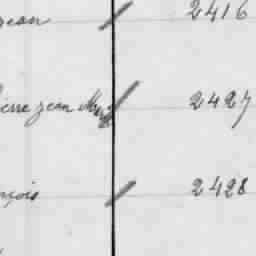 jean 2416
ierre jean 2427
nçois 2428